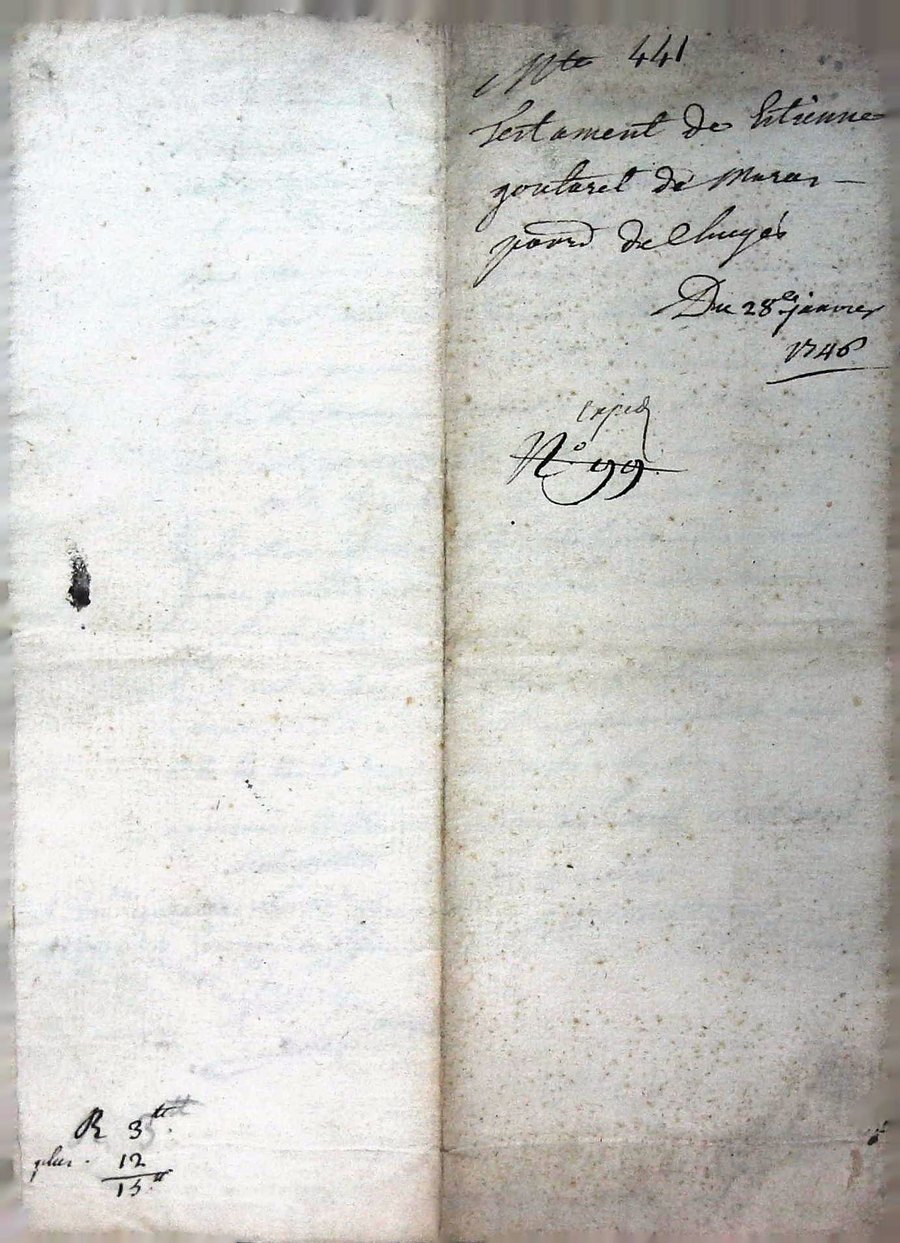 Mte 441
Testament de Estienne
goutaret de Maras
parr. de Chuyés
Du 28e janvier
1746
exped
N° 99
R 3tt.
plus. 12
15tt